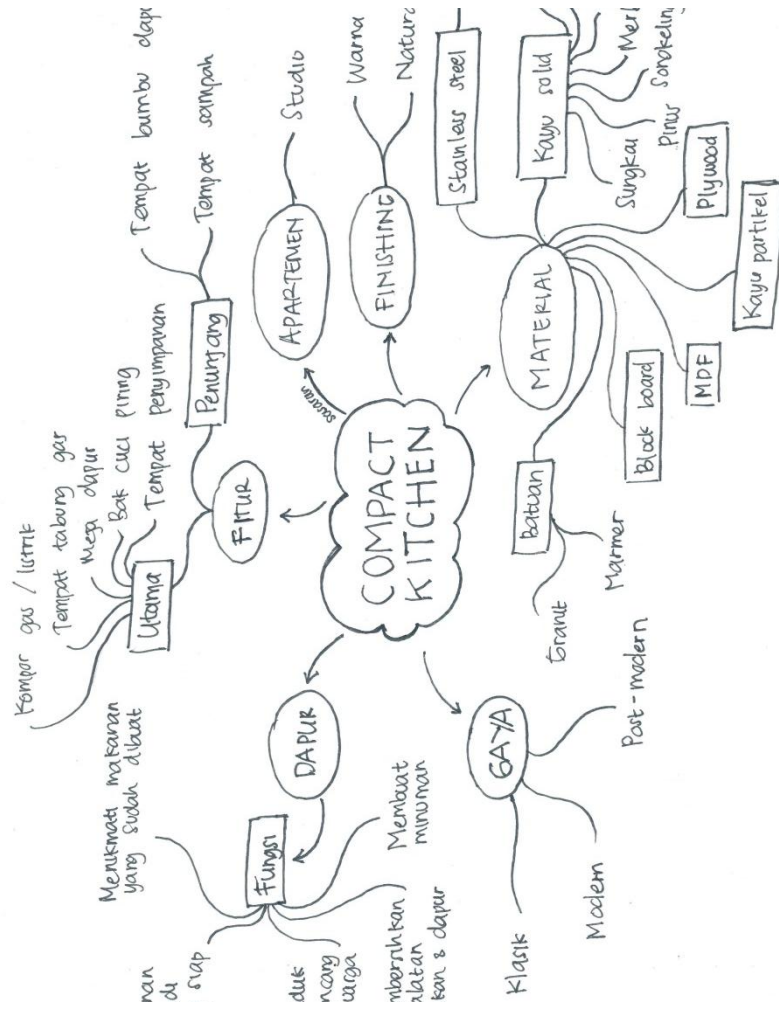 COMPACT
KITCHEN
sasaran
APARTEMEN
Studio
FINISHING
Warna
MATERIAL
Stainless steel
Kayu solid
Sungkai
Pinus
Plywood
Kayu partikel
MDF
Block board
Batuan
Granit
Marmer
GAYA
Klasik
Modern
Post-modern
DAPUR
Fungsi
Menikmati makanan
yang sudah dibuat
Membuat
minuman
siap
FITUR
Utama
Kompor gas / listrik
Tempat tabung gas
Meja dapur
Bak cuci piring
Tempat penyimpanan
Penunjang
Tempat bumbu
Tempat sampah